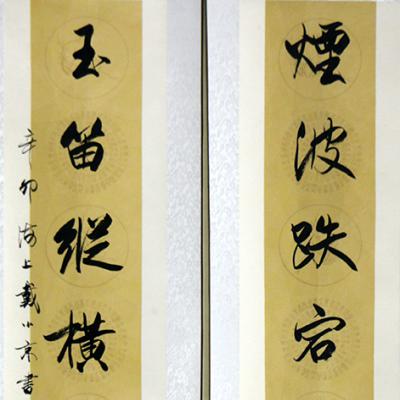 煙波跌宕
玉笛縱橫
辛卯海上戴小京書